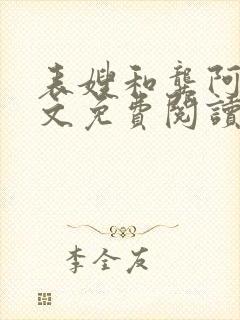 表嫂和龔阿
文免費閱讀
李全友